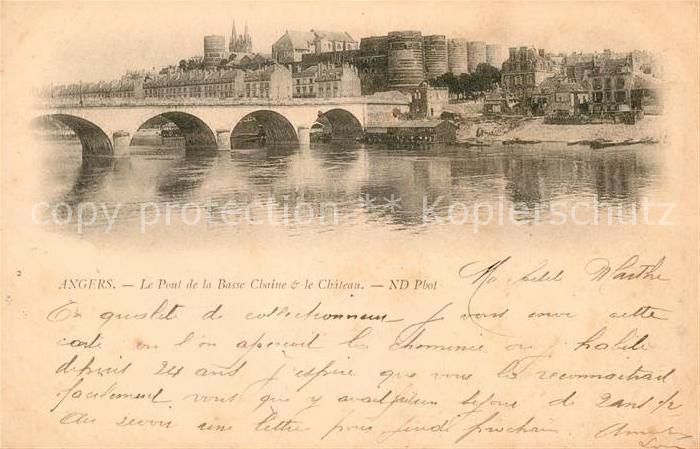 copy protection Kopierschutz
2
ANGERS. — Le Pont de la Basse Chaîne & le Château. — ND Phot
Marthe
En qualité de collectionneur je vous envoi cette
carte ou l'on aperçoit la cheminée ou j' habite
depuis 24 ans j'espère que vous la reconnaitrait
facilement vous que y avait séjour de 2 ans 1/2
Au revoir une lettre pour jeudi prochain.